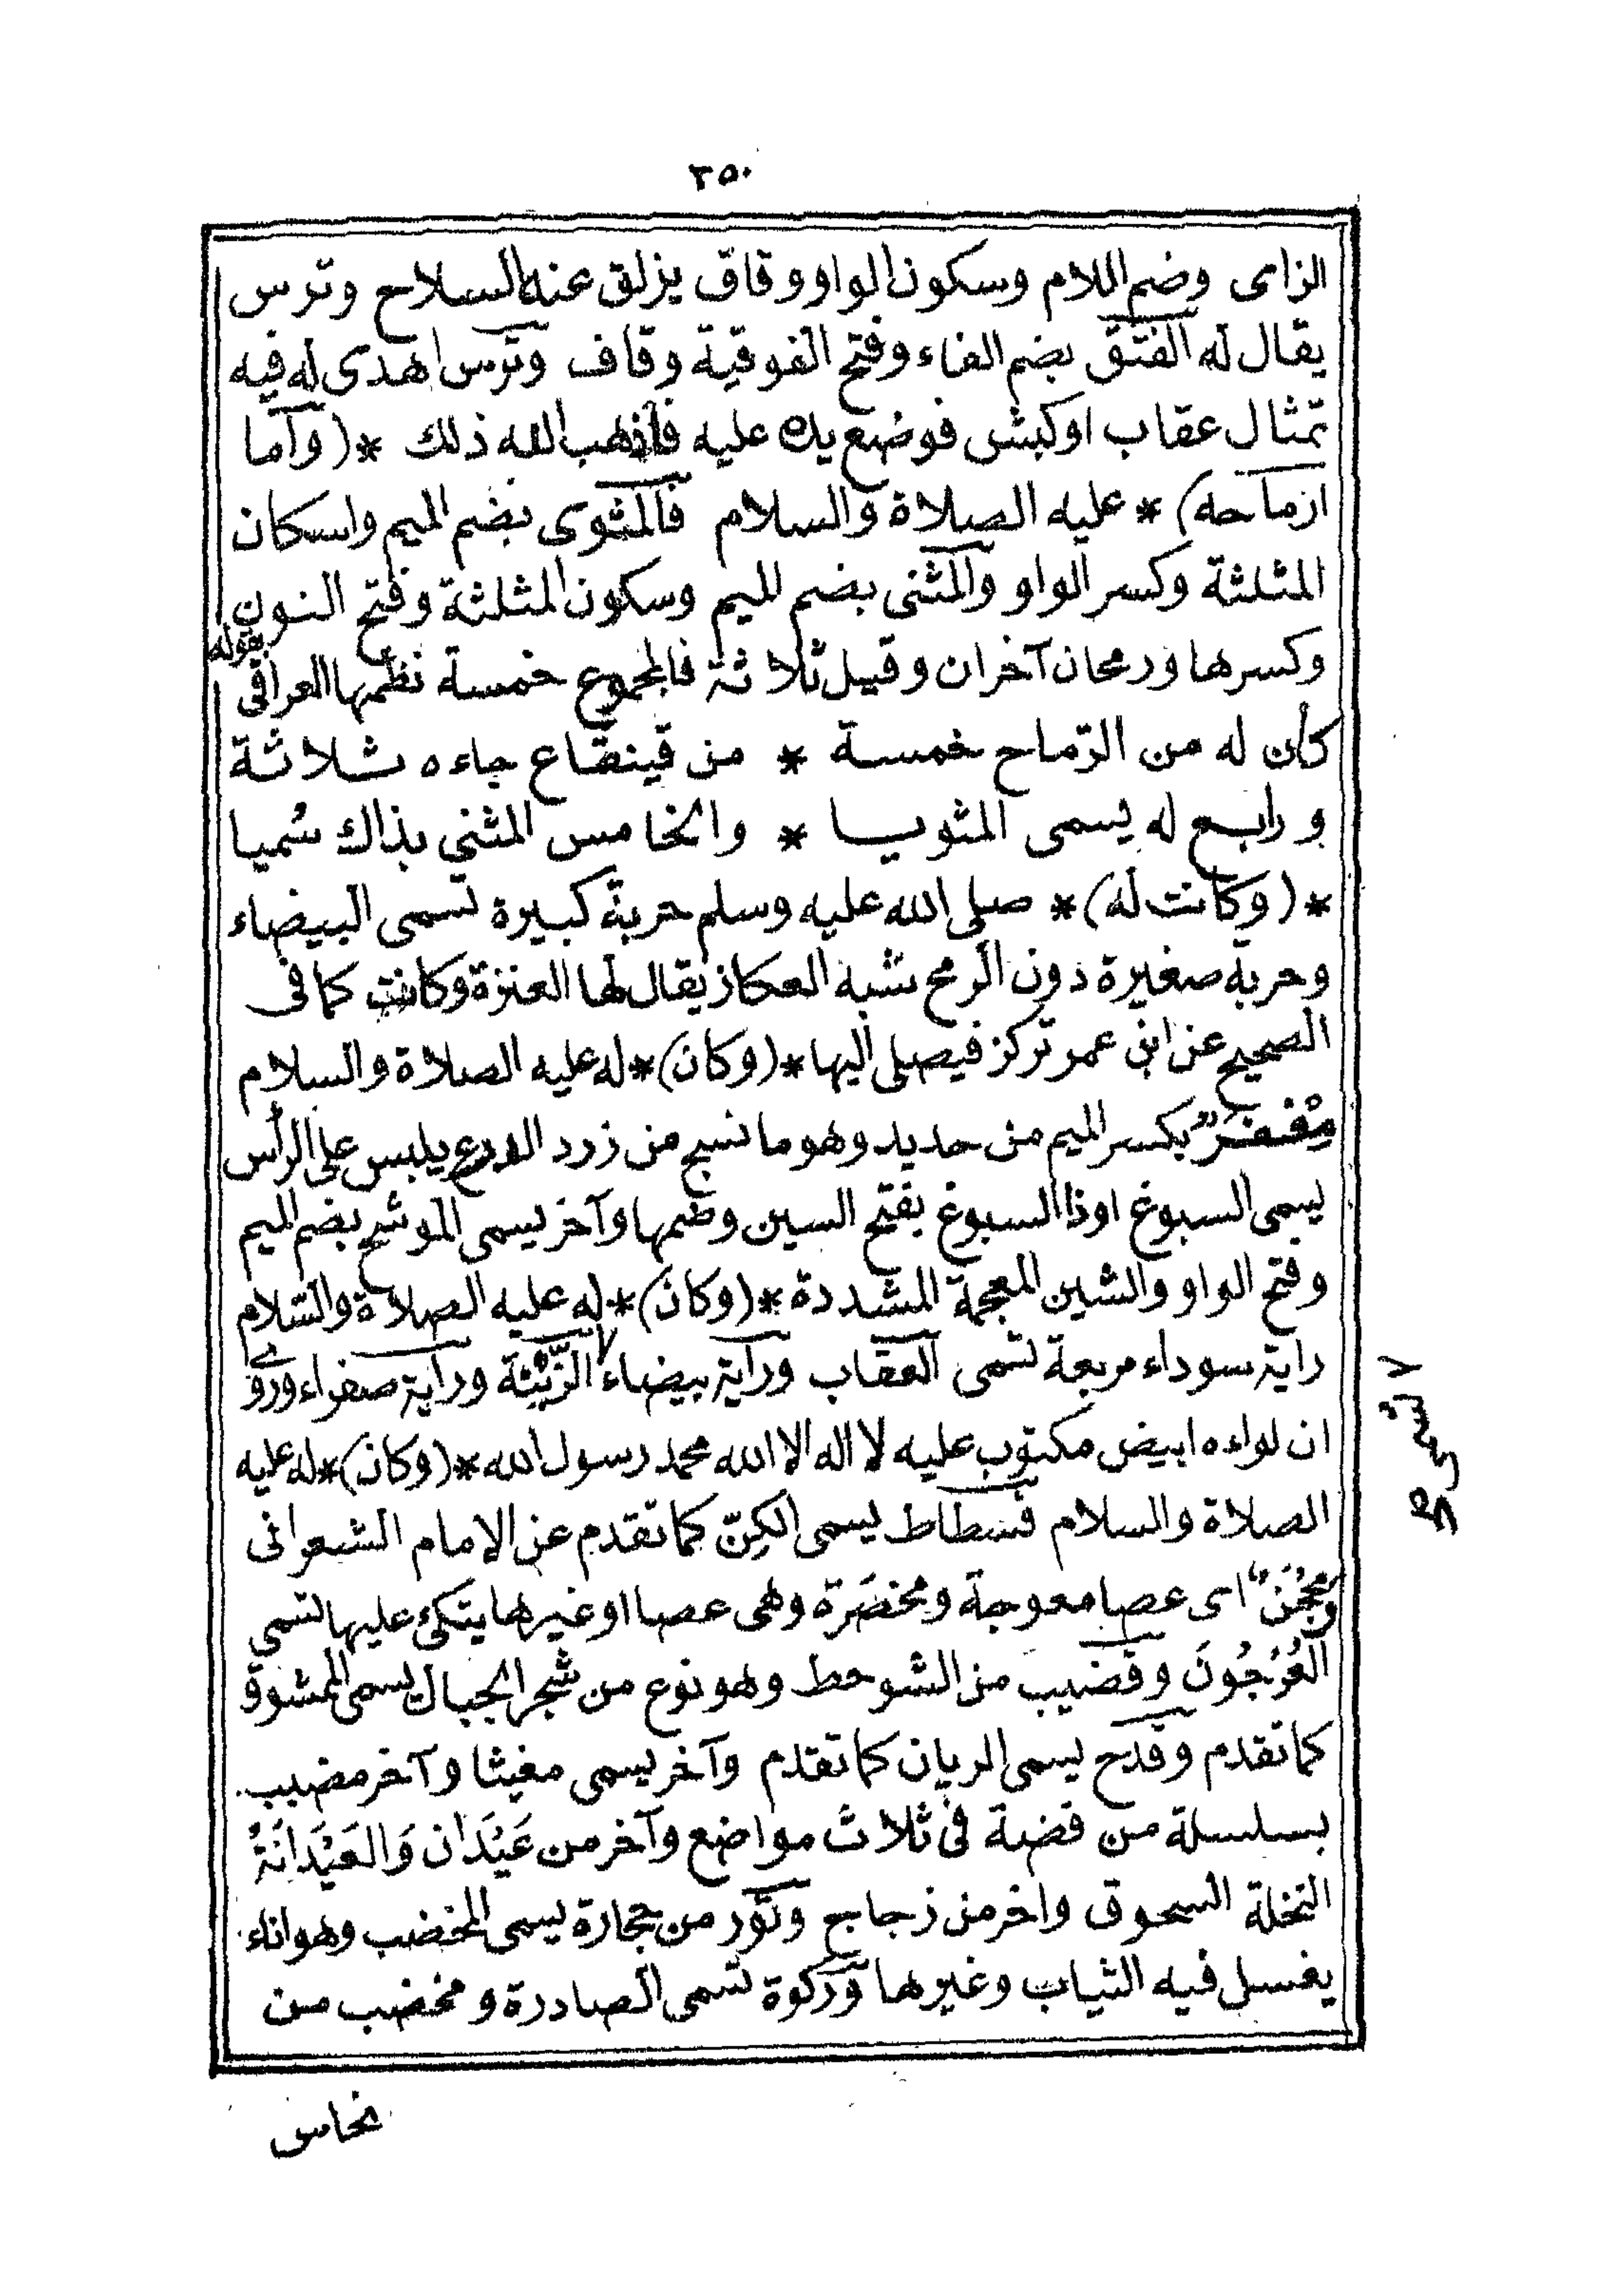 ٢٥٠
الزاى وضم اللام وسكون الواو وقاف يزلق عنه السلاح وترس
يقال له الفتق بضم الفاء وفتح الفوقية وقاف وترس اهدى له فيه
تمثال عقاب اوكبش فوضع يده عليه فأذهب الله ذلك *(وأما
ارماحه)* عليه الصلاة والسلام فالمثوى بضم الميم واسكان
المثلثة وكسر الواو والمثنى بضم الميم وسكون المثلثة وفتح النون
وكسرها ورمحان آخران وقيل ثلاثة فالمجموع خمسة نظمها العراقى بقوله
كان له من الرّماح خمسة * من قينقاع جاءه ثلاثة
ورابع له يسمى المثويا * والخامس المثني بذاك سُميا
*(وكانت له)* صلى الله عليه وسلم حربة كبيرة تسمى البيضاء
وحربة صغيرة دون الرمح شبه العكاز يقال لها العنزة وكانت كما فى
الصحيح عن ابن عمر تركز فيصلى اليها *(وكان)* له عليه الصلاة والسلام
مِغْفَرٌ بكسر الميم من حديد وهو ما نسج من زرد الدرع يلبس على الرأس
يسمى السبوغ اوذا السبوغ بفتح السين وضمها وآخر يسمى الموشح بضم الميم
وفتح الواو والشين المعجمة المشددة *(وكان)* له عليه الصلاة والسلام
راية سوداء مربعة تسمى العقاب وراية بيضاء ٧ الزَّيْنَة وراية صفراء وروى
ان لواءه ابيض مكتوب عليه لا اله الا الله محمد رسول الله *(وكان)* له عليه
الصلاة والسلام فسطاط يسمى الكِنّ كما تقدم عن الامام الشعرانى
ومِحْجَنٌ اى عصا معوجة ومخصَرة وهى عصا اوغيرها يتكئ عليها تسمى
العُرْجُونَ وقضيب من الشوحط وهو نوع من شجر الجبال يسمى الممشوق
كما تقدم وقدح يسمى الريان كما تقدم وآخر يسمى مغيثا وآخر مضبب
بسلسلة من فضة فى ثلاث مواضع وآخر من عَيْدَان وَالعَيْدَانَةُ
النخلة السحوق واخر من زجاج وتَوْر من حجارة يسمى المخضب وهو اناء
يغسل فيه الثياب وغيرها وركوة تسمى الصادرة ومخضب من
نحاس
٧ تسمى صح